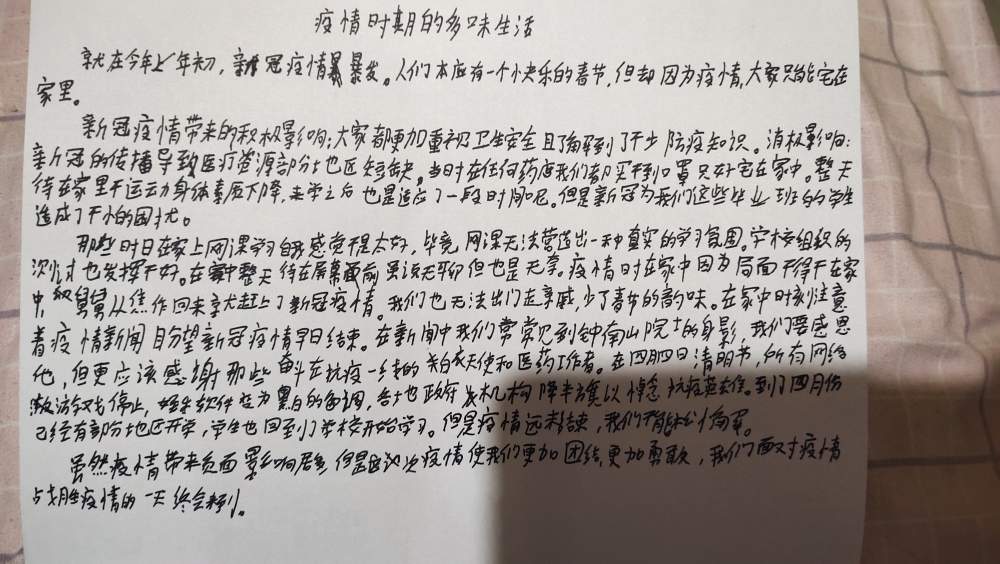 疫情时期的多味生活
就在今年上年初，新冠疫情暴发。人们本应有一个快乐的春节，但却因为疫情，大家只能宅在
家里。
新冠疫情带来的积极影响：大家都更加重视卫生安全且了解到了不少防疫知识。消极影响：
新冠的传播导致医疗资源部分地区短缺。当时在任何药店我们都买不到口罩只好宅在家中。整天
待在家里不运动身体素质下降，来学之后也是适应了一段时间呢。但是新冠为我们这些毕业班的学生
造成了不小的困扰。
那些时日在家上网课学习自我感觉不是太好，毕竟网课无法营造出一种真实的学习氛围。学校组织的
次测试也发挥不好。在家中整天待在屏幕面前虽说无聊但也是无奈。疫情时在家中因为局面不得不在家
中，舅舅从焦作回来就赶上了新冠疫情。我们也无法出门走亲戚，少了春节的韵味。在家中时刻注意
着疫情新闻盼望新冠疫情早日结束。在新闻中我们常常见到钟南山院士的身影，我们要感恩
他，但更应该感谢那些奋斗在抗疫一线的白衣天使和医药工作者。在四月四日清明节，所有网络
游戏停止，软件变为黑白的色调，各地政府机构降半旗以悼念抗疫英雄。到了四月份
已经有部分地区开学，学生也回到了学校开始学习。但是疫情远未结束，我们不能松懈。
虽然疫情带来负面影响居多，但是这次疫情使我们更加团结，更加勇敢，我们面对疫情
战胜疫情的一天终会来到。